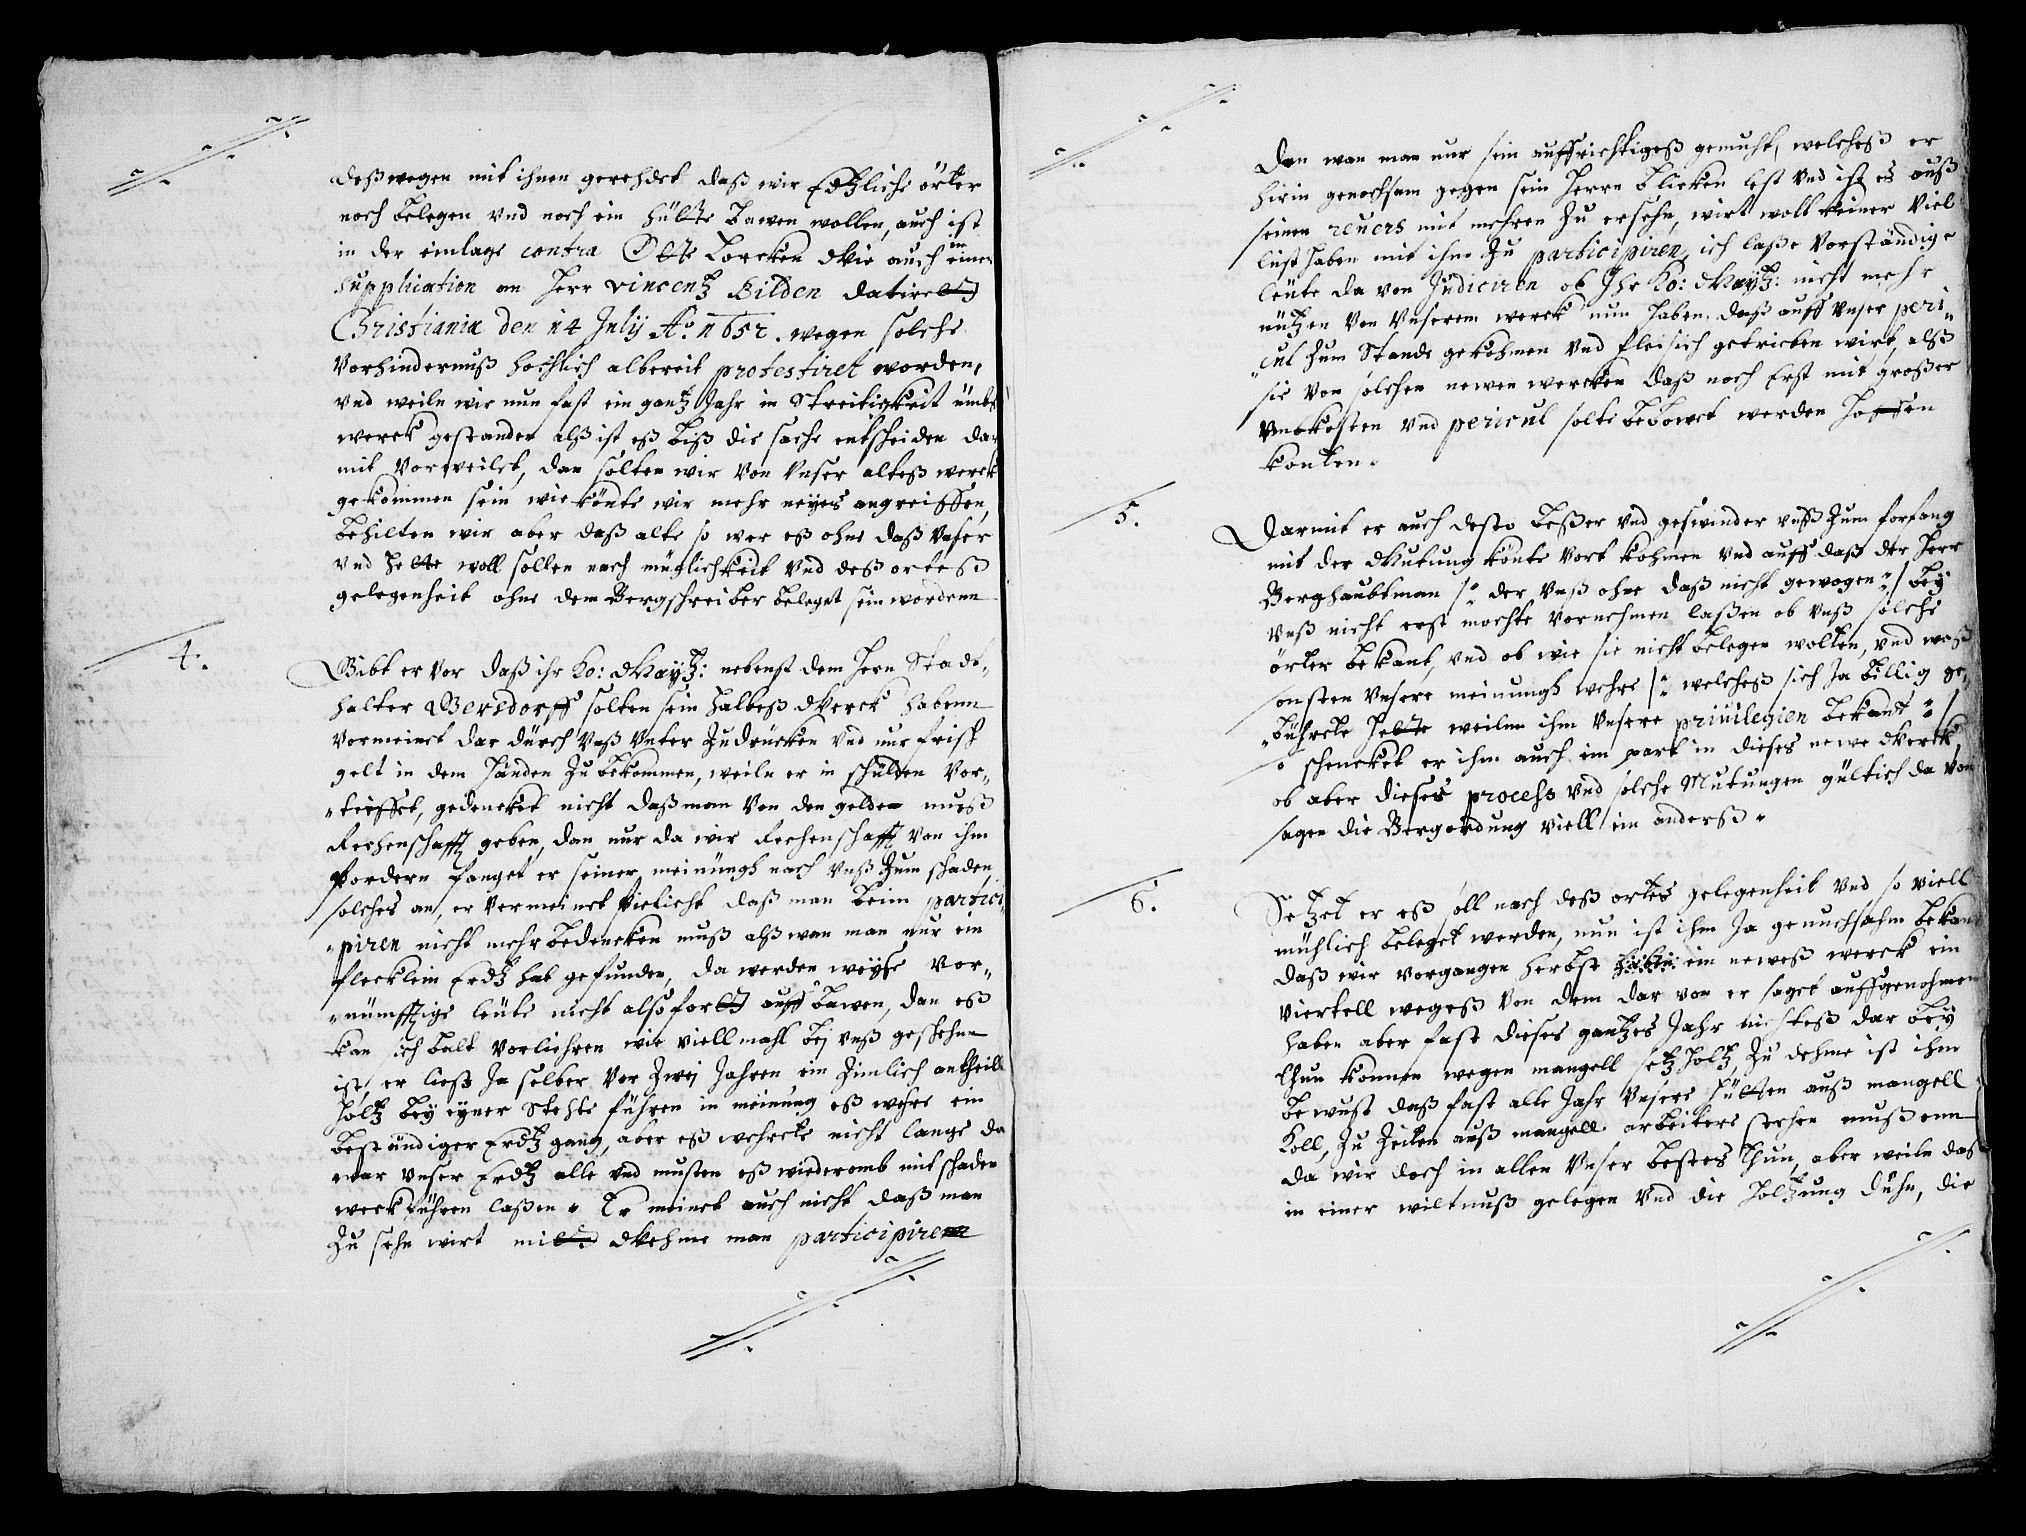 deßwegen mit ihnen geredet daß wir Erdtzliche örter
noch belegen vnd noch ein hütte bawen wollen, auch ist
in der einlage contra Otte Lorcken Wie auch in einer
supplication an Herr vincentz Bilden datirett
Christiania den 14 Julij Ao 1652. wegen solche
Vorhindernuß höchlich albereit protestiret worden,
vnd weiln wir nun fast ein gantz Jahr in Streitigkeit ümbs
werck gestanden alß ist eß biß die sache entscheiden dar
mit Vorweilet, dan solten wir Von Vnser alteß werck
gekommen sein wie könte wir mehr neyes angreiffen,
behilten wir aber daß alte so wer eß ohne daß Vnser
vnd hette woll sollen nach müglichkeit vnd deß orteß
gelegenheit ohne dem Bergschreiber beleget sein wordenn
4.
Gibt er vor daß ihr Ko: Maytz: nebenst dem Hern Stadt-
halter Gersdorff solten sein halbeß Werck habenn
Vormeinet dar dürch Vnß Vnter Zudrücken Vnd nur frisch
gelt in dem händen Zu bekommen, weiln er in schülten Vor-
tieffet, gedencket nicht daß man Von den gelden muß
Rechenschafft geben, dan nur da wir Rechenschafft von ihm
fordern fanget er seiner meinüngh nach Vnß Zum schaden
solches an, er Vermeinet Vielicht daß man beim partici-
piren nicht mehr bedencken muß alß wan man nur ein
flecklein Erdtz hat gefunden, da werden weyse Vor-
nümfftige leüte nicht alsofortt auff bawen, dan eß
kan sich balt Vorliehren wie viell mahl bej vnß geschehn
ist, er ließ Ja selber Vor Zwej Jahren ein Zimlich antheill
holtz bey eyner Stehte führen in meinung eß wehre ein
beständiger Erdtz gang, aber eß wehrete nicht lange da
war Vnser Erdtz alle vnd musten eß wiederomb mit schaden
weck führen laßen. Er meinet auch nicht daß man
Zu sehn wirt mitt Wehme man participiren
Den wan man nur sein auffrichtigeß gemuht, welcheß er
hirin genochsam gegen sein Herrn blicken lest Vnd ist es auß
seinen reuers mit mehren Zu ersehn, wirt woll keiner Viel
lust haben mit ihm Zu participiren, ich laße Vorständige
leüte da von Judiciren ob Ihr Ko: Maytz: nicht mehr
nützen Von Vnserem werck nun haben, daß auff Vnser peri-
cul Zum Stande gekohmen Vnd fleisich getrieben wirt, alß
sie Von solchen newen wercken daß noch Erst mit großer
Vnkosten vnd pericul solte bebowet werden hoffen
konten.
5.
Darmit er auch desto beßer vnd geswinder vnß Zum forfang
mit der Mutung könte Vort kohmen Vnd auff daß der Herr
Berghaubtman /: der Vnß ohne daß nicht gewogen :/ bey
Vnß nicht erst mochte Vornehmen laßen ob Vnß solche
örter bekant, vnd ob wir sie nicht belegen wolten, vnd waß
sonsten Vnsere meinungh wehre /: welcheß sich Ja billig ge-
bührete hette weiln ihm Vnsere priuilegien bekandt :/
so schencket er ihm auch ein part in dieses newe Werck,
ob aber dieses process vnd solche Mutungen gültich da von
sagen die Bergordung viell ein anderß.
6.
Setzet er eß soll nach deß ortes gelegenheit Vnd so viell
mühlich beleget werden, nun ist ihm Ja genuchsahm bekant
daß wir Vorgangen herbst ein neweß werck ein
Viertell wegeß Von dem dar von er saget auffgenohmen
haben aber fast dieses gantzes Jahr nichteß dar bey
thun konnen wegen mangell setz holtz, Zu dehme ist ihm
bewust daß fast alle Jahr Vnsere hütten auß mangell
Koll, Zu Zeiten auß mangell arbeiters stehen mußenn
da wir doch in allen Vnser bestes thun, aber weiln das
in einer wiltnuß gelegen Vnd die holtzung dühn, die